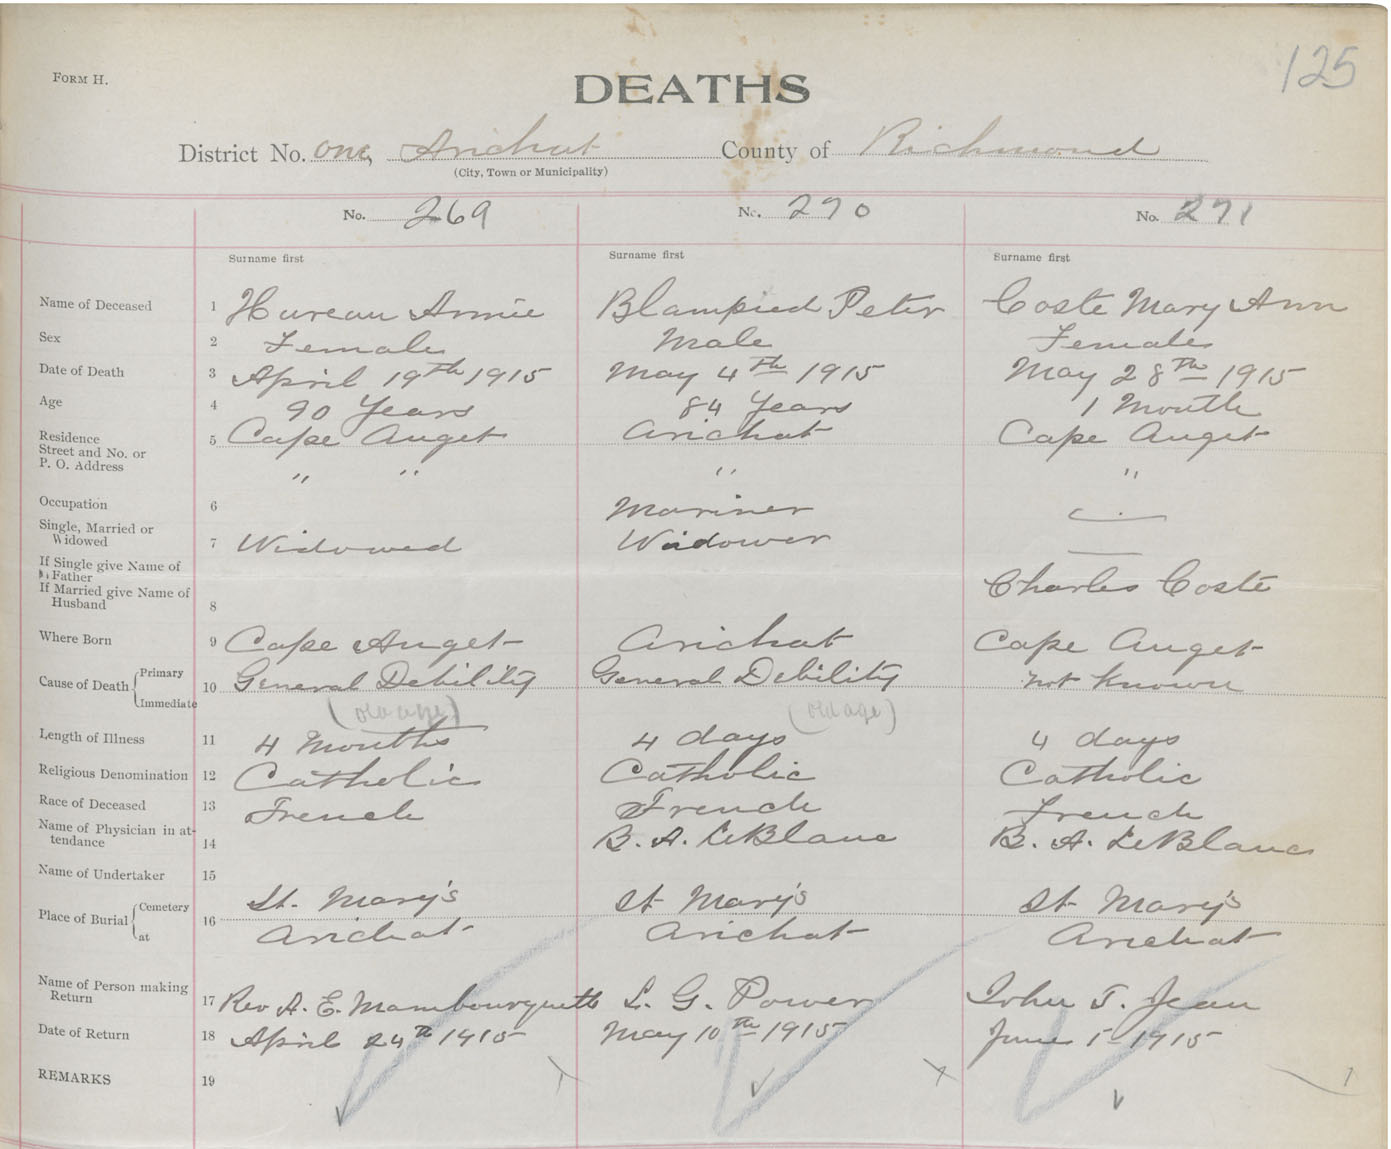 125
FORM H.
DEATHS
District No. one, Arichat County of Richmond
(City, Town or Municipality)
No. 269 No. 270 No. 271
Surname first Surname first Surname first
Name of Deceased 1 Hureau Annie Blampied Peter Coste Mary Ann
Sex 2 Female Male Female
Date of Death 3 April 19th 1915 May 4th 1915 May 28th 1915
Age 4 90 Years 84 Years 1 Month
Residence 5 Cape Auget Arichat Cape Auget
Street and No. or
P. O. Address " " " "
Occupation 6 Mariner
Single, Married or
Widowed 7 Widowed Widower
If Single give Name of
Father
If Married give Name of Charles Coste
Husband 8
Where Born 9 Cape Auget Arichat Cape Auget
Cause of Death Primary 10 General Debility General Debility not known
Immediate (old age) (old age)
Length of Illness 11 4 Months 4 days 4 days
Religious Denomination 12 Catholic Catholic Catholic
Race of Deceased 13 French French French
Name of Physician in at-
tendance 14 B. A. LeBlanc B. A. LeBlanc
Name of Undertaker 15
Place of Burial Cemetery 16 St. Mary's St Mary's St Mary's
at Arichat Arichat Arichat
Name of Person making
Return 17 Rev A. E. Mombourquette L. G. Power John T. Jean
Date of Return 18 April 24th 1915 May 10th 1915 June 1 1915
REMARKS 19